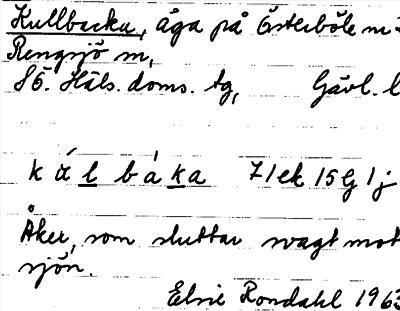 Kullbacka, äga på Österböle m
Rengsjö sn,
SÖ. Häls. doms. tg, Gävl. l
kúlbáka 71ek 15G 1j
Åker, som sluttar svagt mot
sjön.
Elsie Rondahl 1963